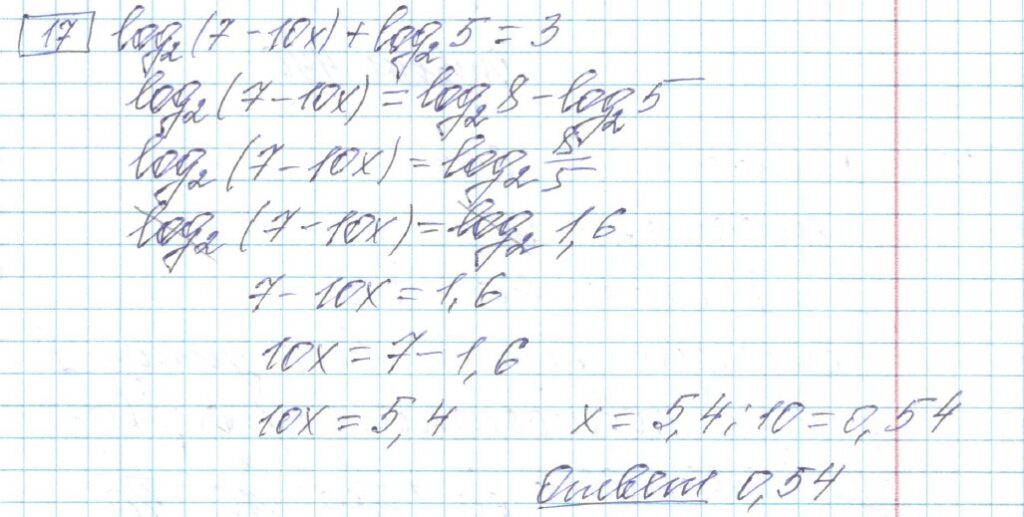 17 log₂(7-10x)+log₂5=3
log₂(7-10x)=log₂8-log₂5
log₂(7-10x)=log₂8/5
log₂(7-10x)=log₂1,6
7-10x=1,6
10x=7-1,6
10x=5,4 x=5,4:10=0,54
Ответ 0,54